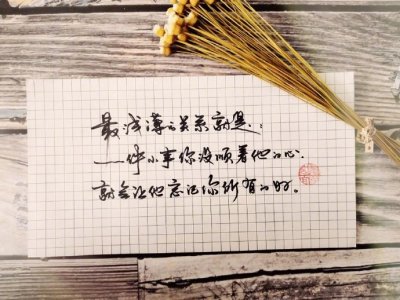 最浅薄的关系就是：
一件小事你没顺着他的心.
就会让他忘记你所有的好。